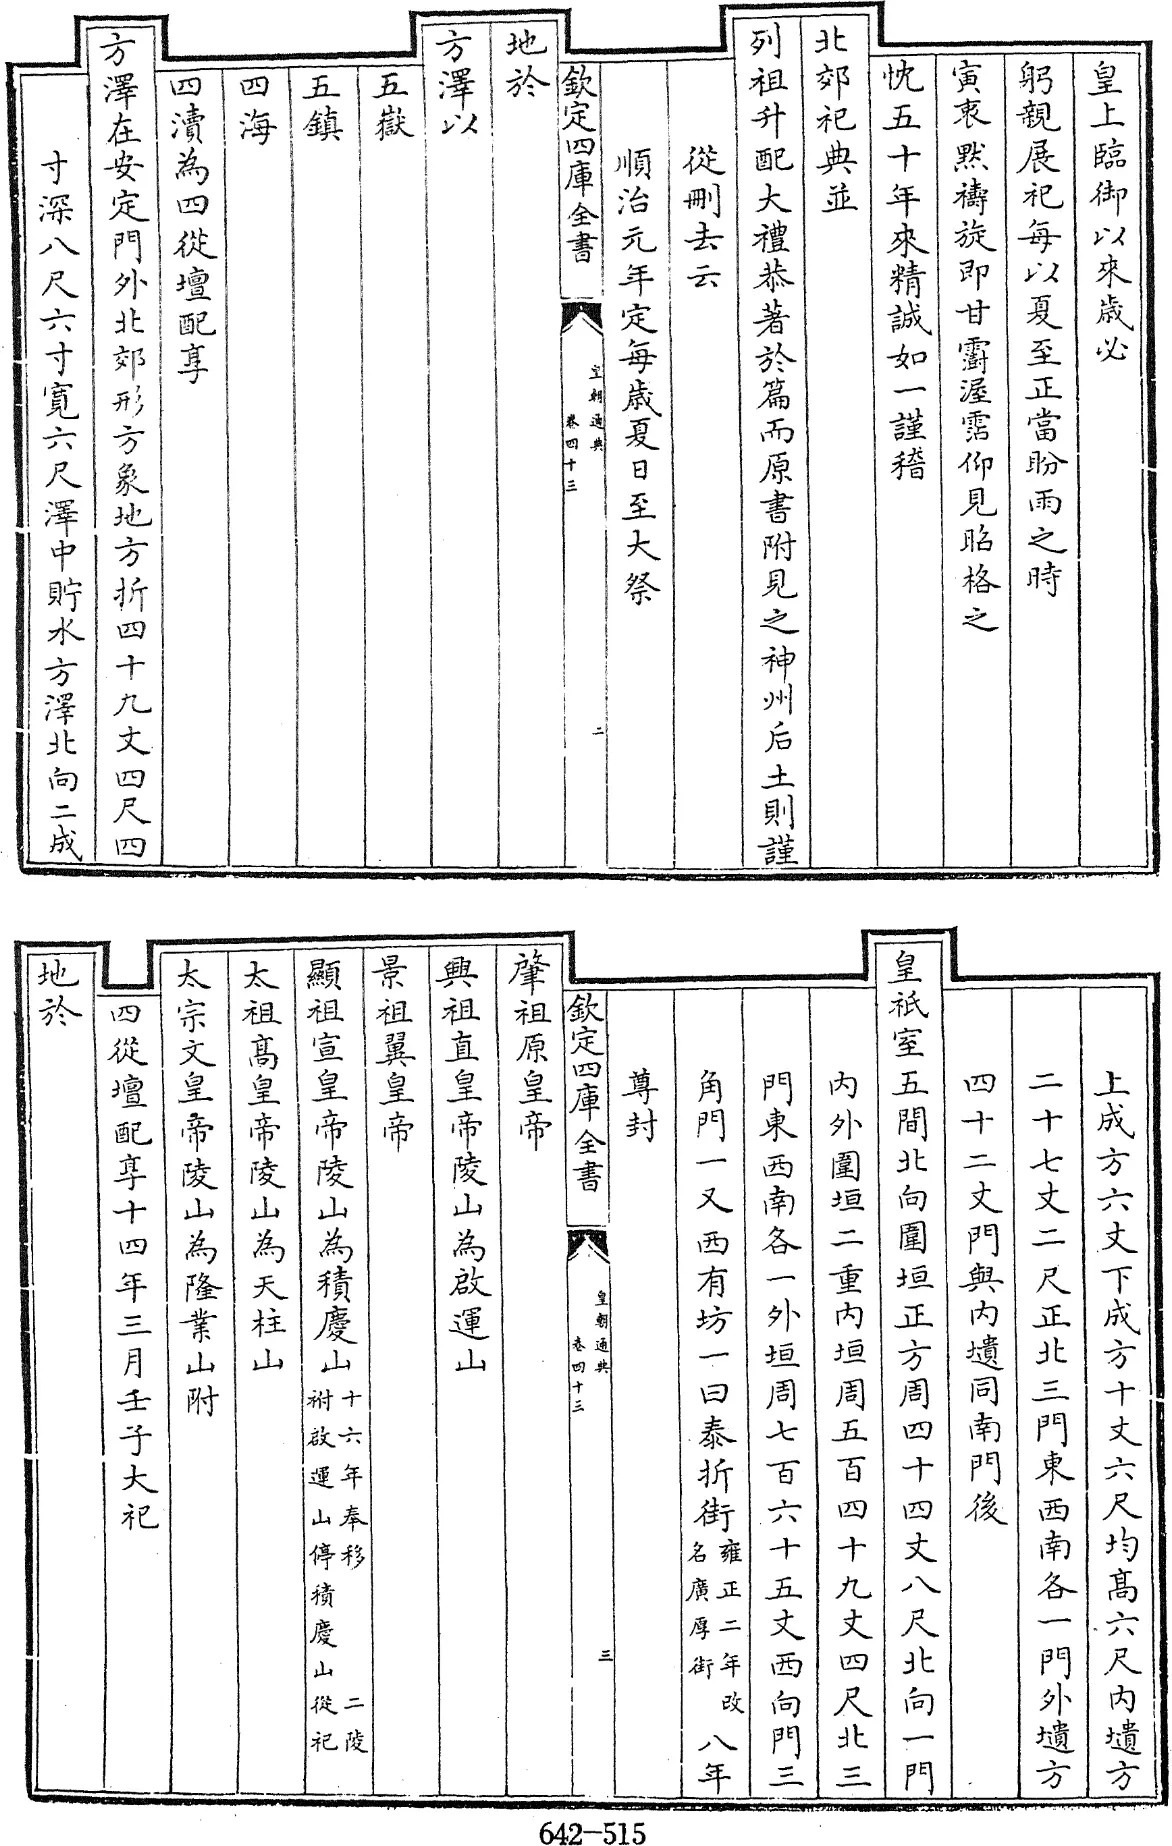 皇上臨御以來歳必
躬親展祀每以夏至正當盼雨之時
寅衷黙禱旋即甘霔渥霑仰見昭格之
忱五十年來精誠如一謹稽
北郊祀典並
列祖升配大禮恭著於篇而原書附見之神州后土則謹
從刪去云
順治元年定每歳夏日至大祭
欽定四庫全書
皇朝通典
卷四十三
二
地於
方澤以
五嶽
五鎮
四海
四瀆為四從壇配享
方澤在安定門外北郊形方象地方折四十九丈四尺四
寸深八尺六寸寛六尺澤中貯水方澤北向二成
上成方六丈下成方十丈六尺均髙六尺内壝方
二十七丈二尺正北三門東西南各一門外壝方
四十二丈門與内壝同南門後
皇祇室五間北向圍垣正方周四十四丈八尺北向一門
内外圍垣二重内垣周五百四十九丈四尺北三
門東西南各一外垣周七百六十五丈西向門三
角門一又西有坊一曰泰折街雍正二年改名廣厚街八年
尊封
欽定四庫全書
皇朝通典
卷四十三
三
肇祖原皇帝
興祖直皇帝陵山為啟運山
景祖翼皇帝
顯祖宣皇帝陵山為積慶山十六年奉移 二陵祔啟運山停積慶山從祀
太祖髙皇帝陵山為天柱山
太宗文皇帝陵山為隆業山附
四從壇配享十四年三月壬子大祀
地於
642-515